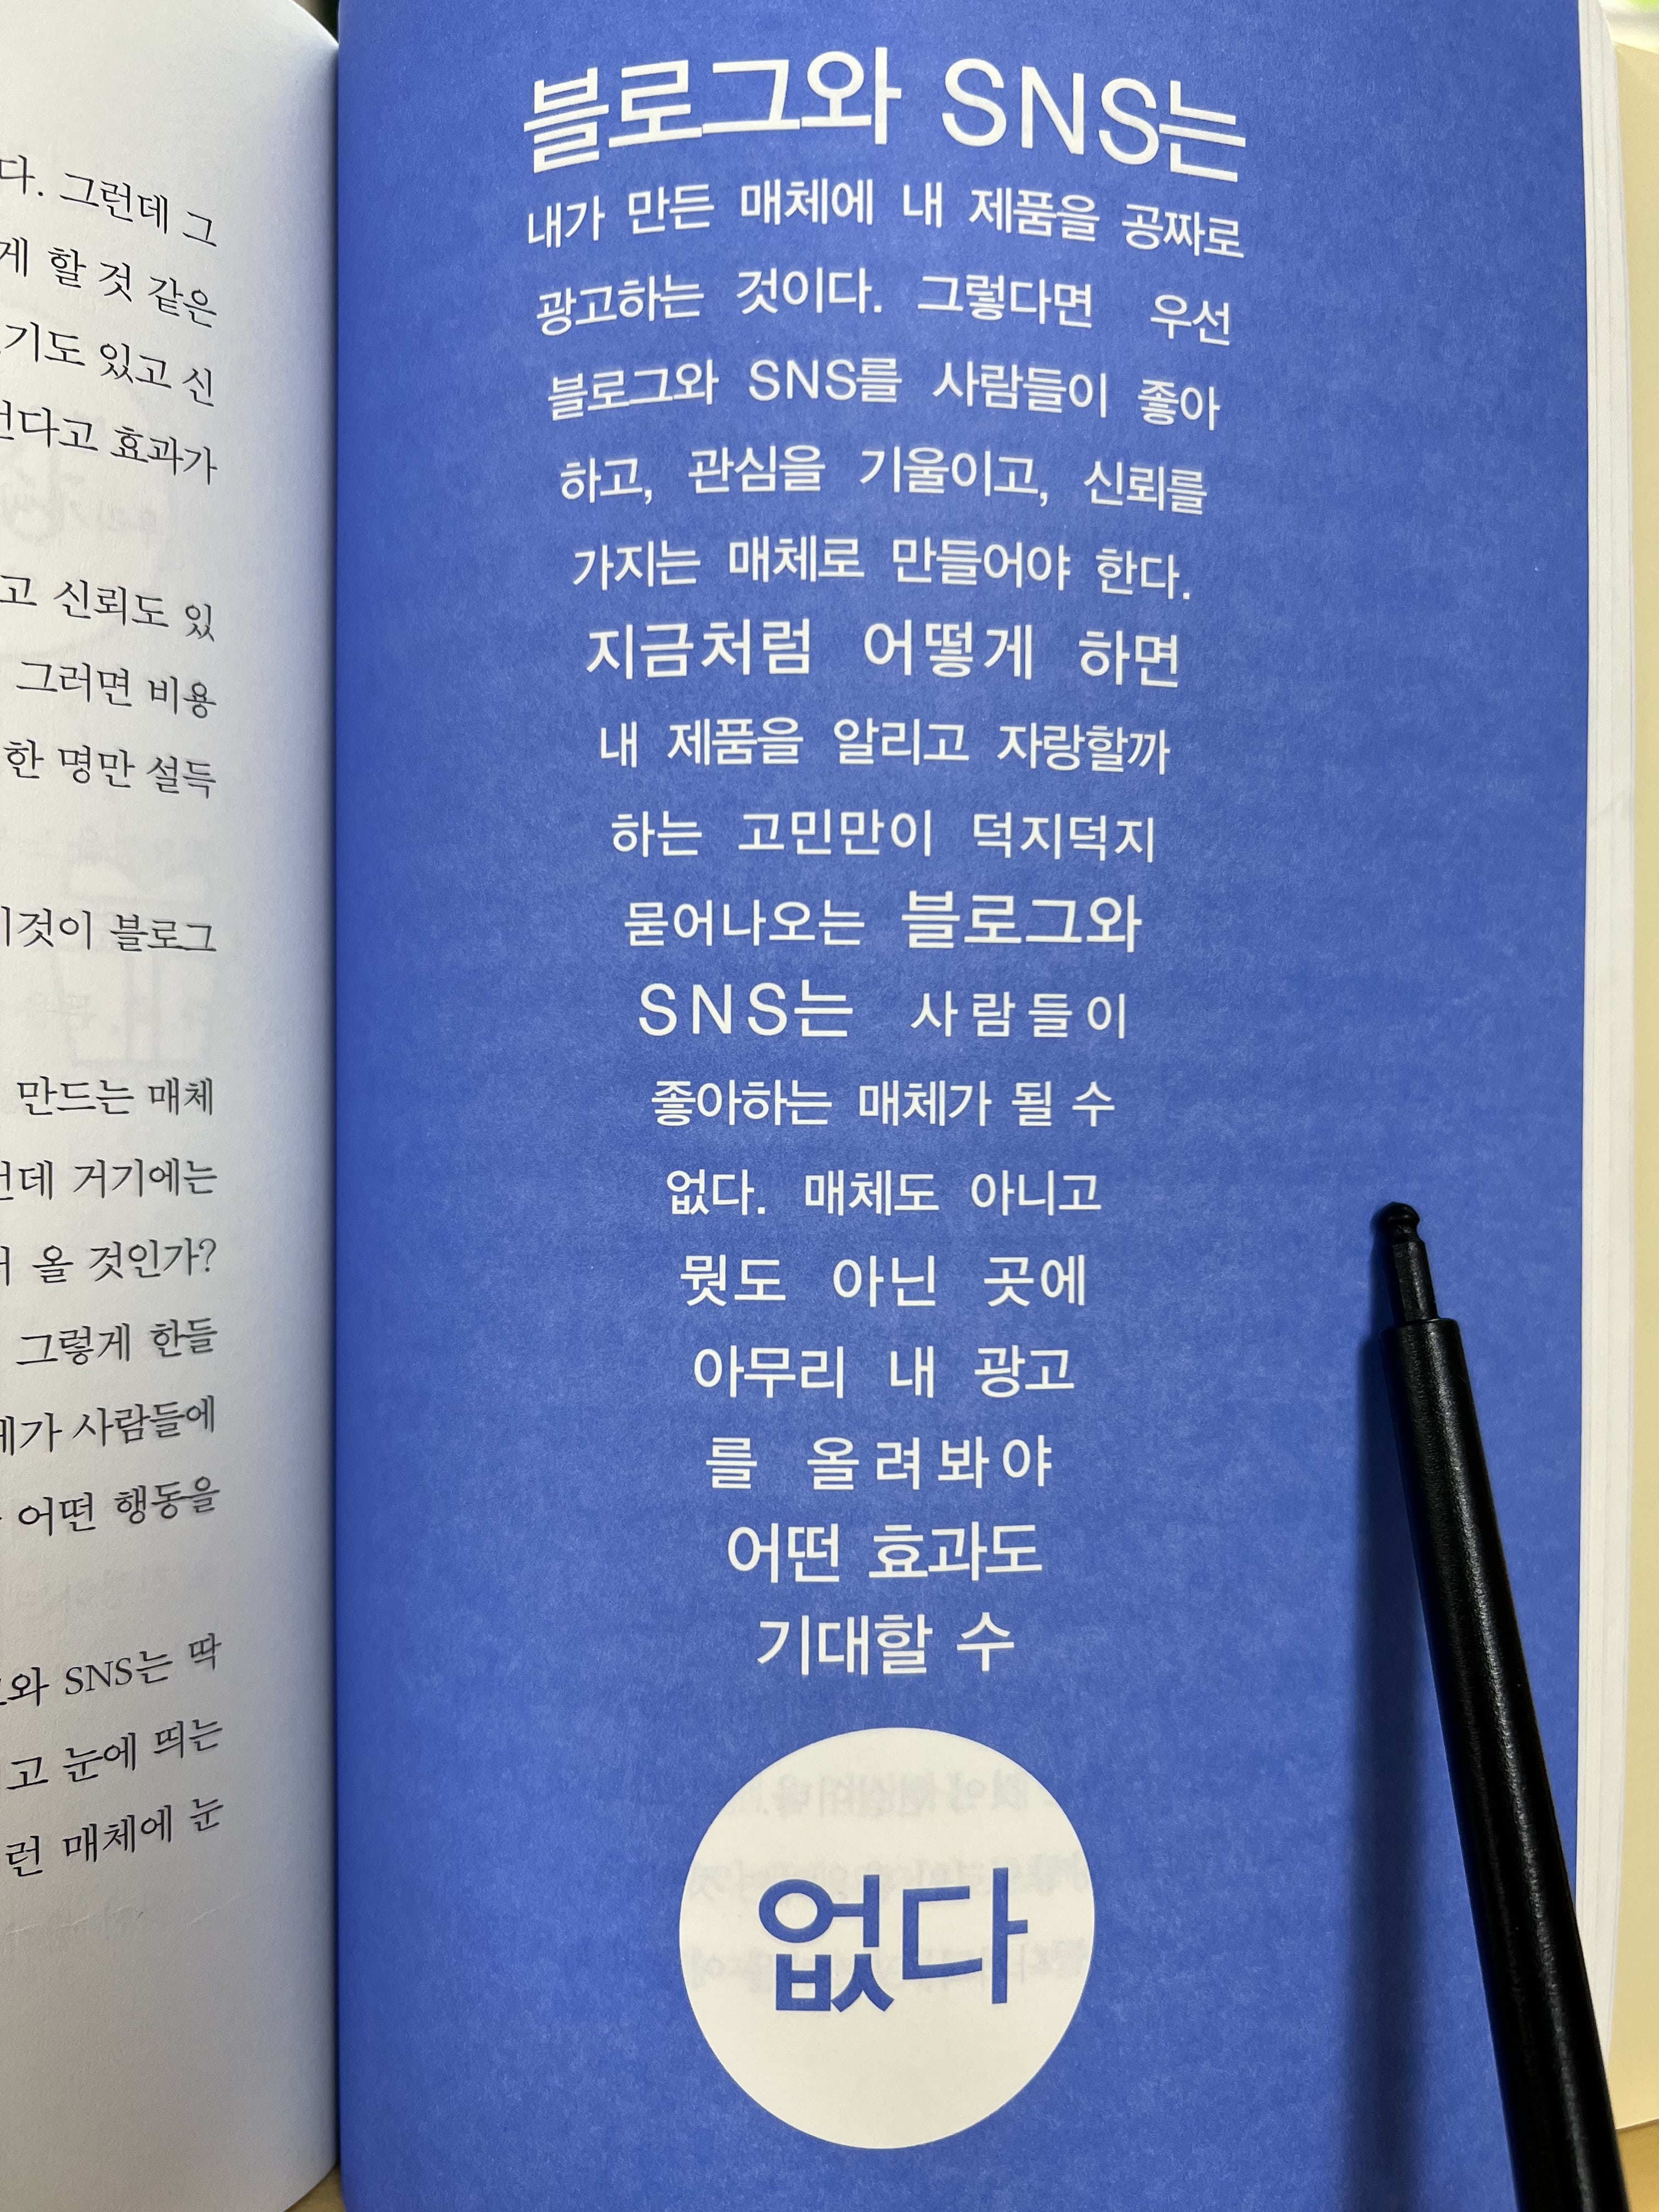 다. 그런데 그
게 할 것 같은
기도 있고 신
다고 효과가
고 신뢰도 있
그러면 비용
한 명만 설득
이것이 블로그
만드는 매체
런데 거기에는
올 것인가?
그렇게 한들
체가 사람들에
어떤 행동을
와 SNS는 딱
고 눈에 띄는
런 매체에 눈
블로그와 SNS는
내가 만든 매체에 내 제품을 공짜로
광고하는 것이다. 그렇다면 우선
블로그와 SNS를 사람들이 좋아
하고, 관심을 기울이고, 신뢰를
가지는 매체로 만들어야 한다.
지금처럼 어떻게 하면
내 제품을 알리고 자랑할까
하는 고민만이 덕지덕지
묻어나오는 블로그와
SNS는 사람들이
좋아하는 매체가 될 수
없다. 매체도 아니고
뭣도 아닌 곳에
아무리 내 광고
를 올려봐야
어떤 효과도
기대할 수
없다